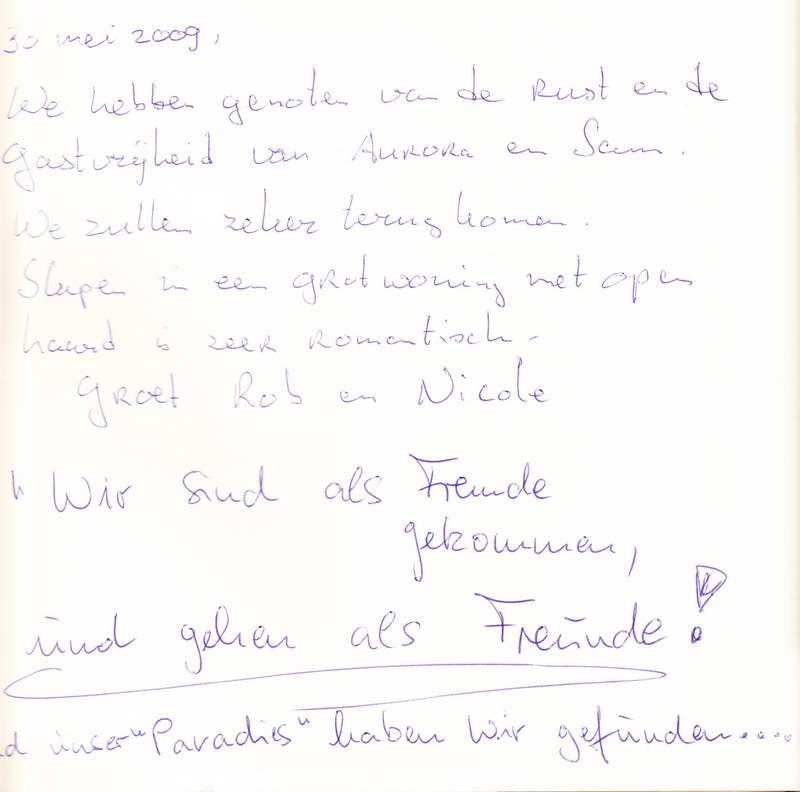 30 mei 2009,
We hebben genoten van de rust en de
gastvrijheid van Aurora en Sam.
We zullen zeker terug komen.
Slapen in een grotwoning met open
haard is zeer romantisch.
Groet Rob en Nicole
"Wir sind als Fremde
gekommen,
und gehen als Freunde!
unser "Paradies" haben wir gefunden....